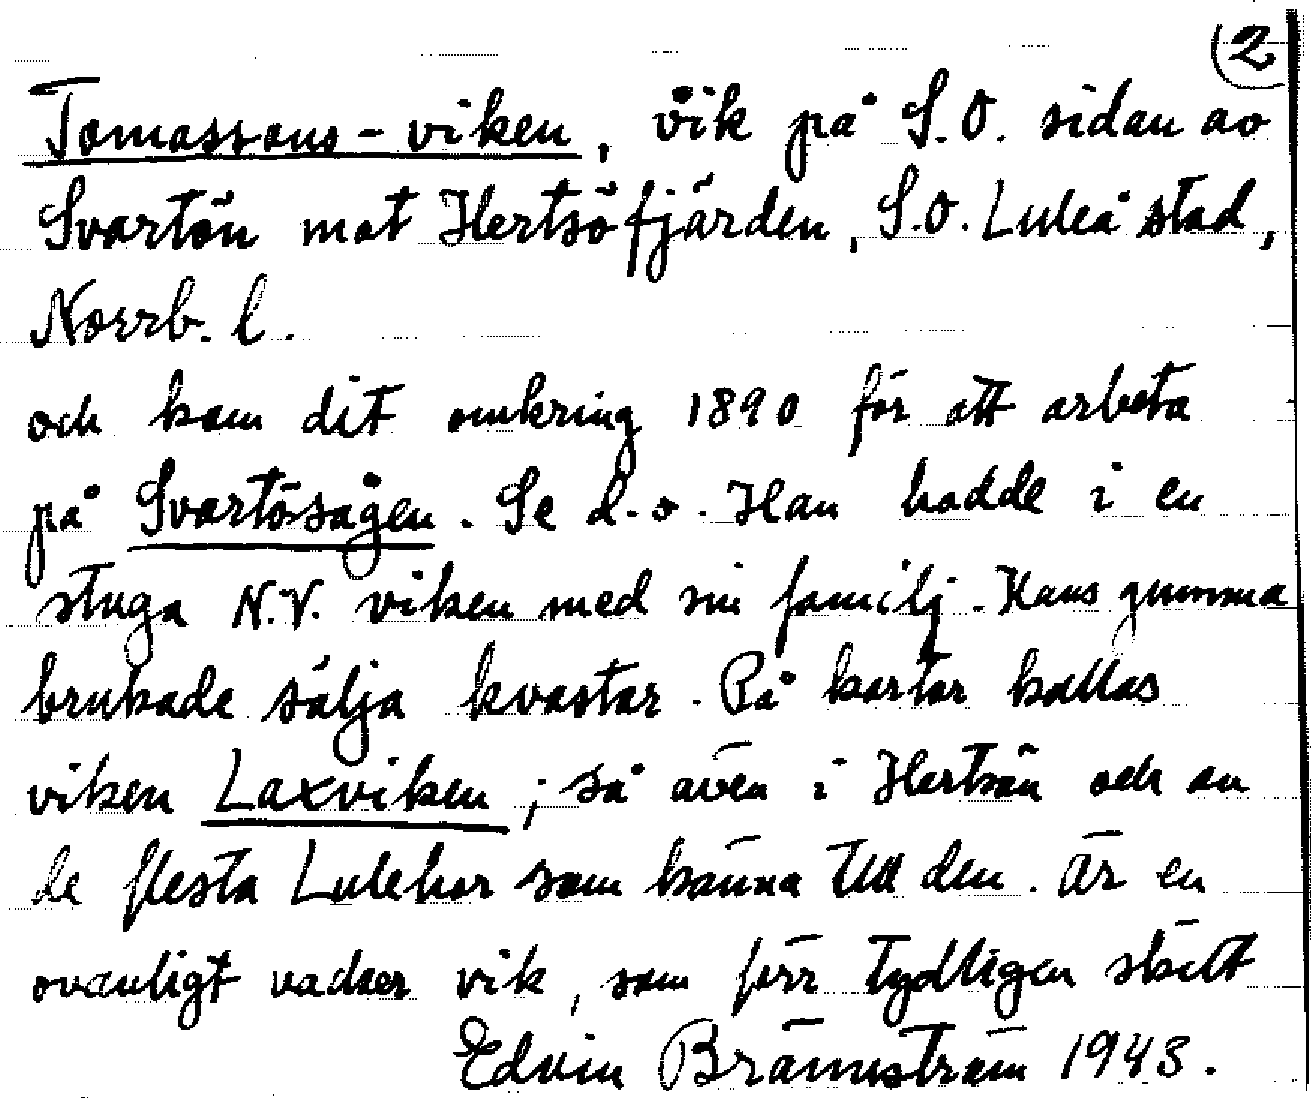 (2
Tomassons-viken, vik på S.O. sidan av
Svartön mot Hertsöfjärden, S.O. Luleå stad,
Norrb. l.
och kom dit omkring 1890 för att arbeta
på Svartösågen. Se d.o. Han hadde i en
stuga N.V. viken med sin familj. Hans gumma
brukade sälja kvastar. På kartor kallas
viken Laxviken; så även i Hertsön och av
de flesta Lulebor som känna till den. Är en
ovanligt vacker vik, som förr tydligen skilt
Edvin Brännström 1943.